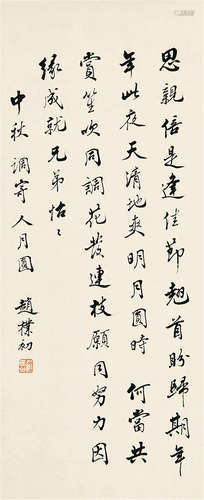 思親倍是逢佳節翹首盼歸期年
年此夜天清地爽明月圓時 何當共
賞笙吹同調花發連枝願同努力因
緣成就兄弟怡〻
中秋調寄人月圓 趙樸初